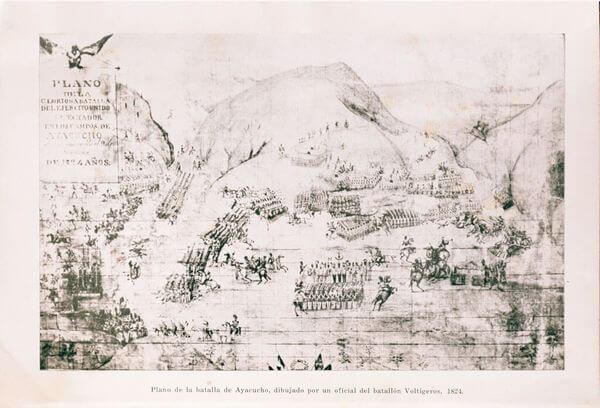 PLANO
DE LA
GLORIOSA BATALLA
DEL EJERCITO UNIDO
EN LOS CAMPOS DE
AYACUCHO
DE 1824 AÑOS.
Plano de la batalla de Ayacucho, dibujado por un oficial del batallón Voltígeros. 1824.